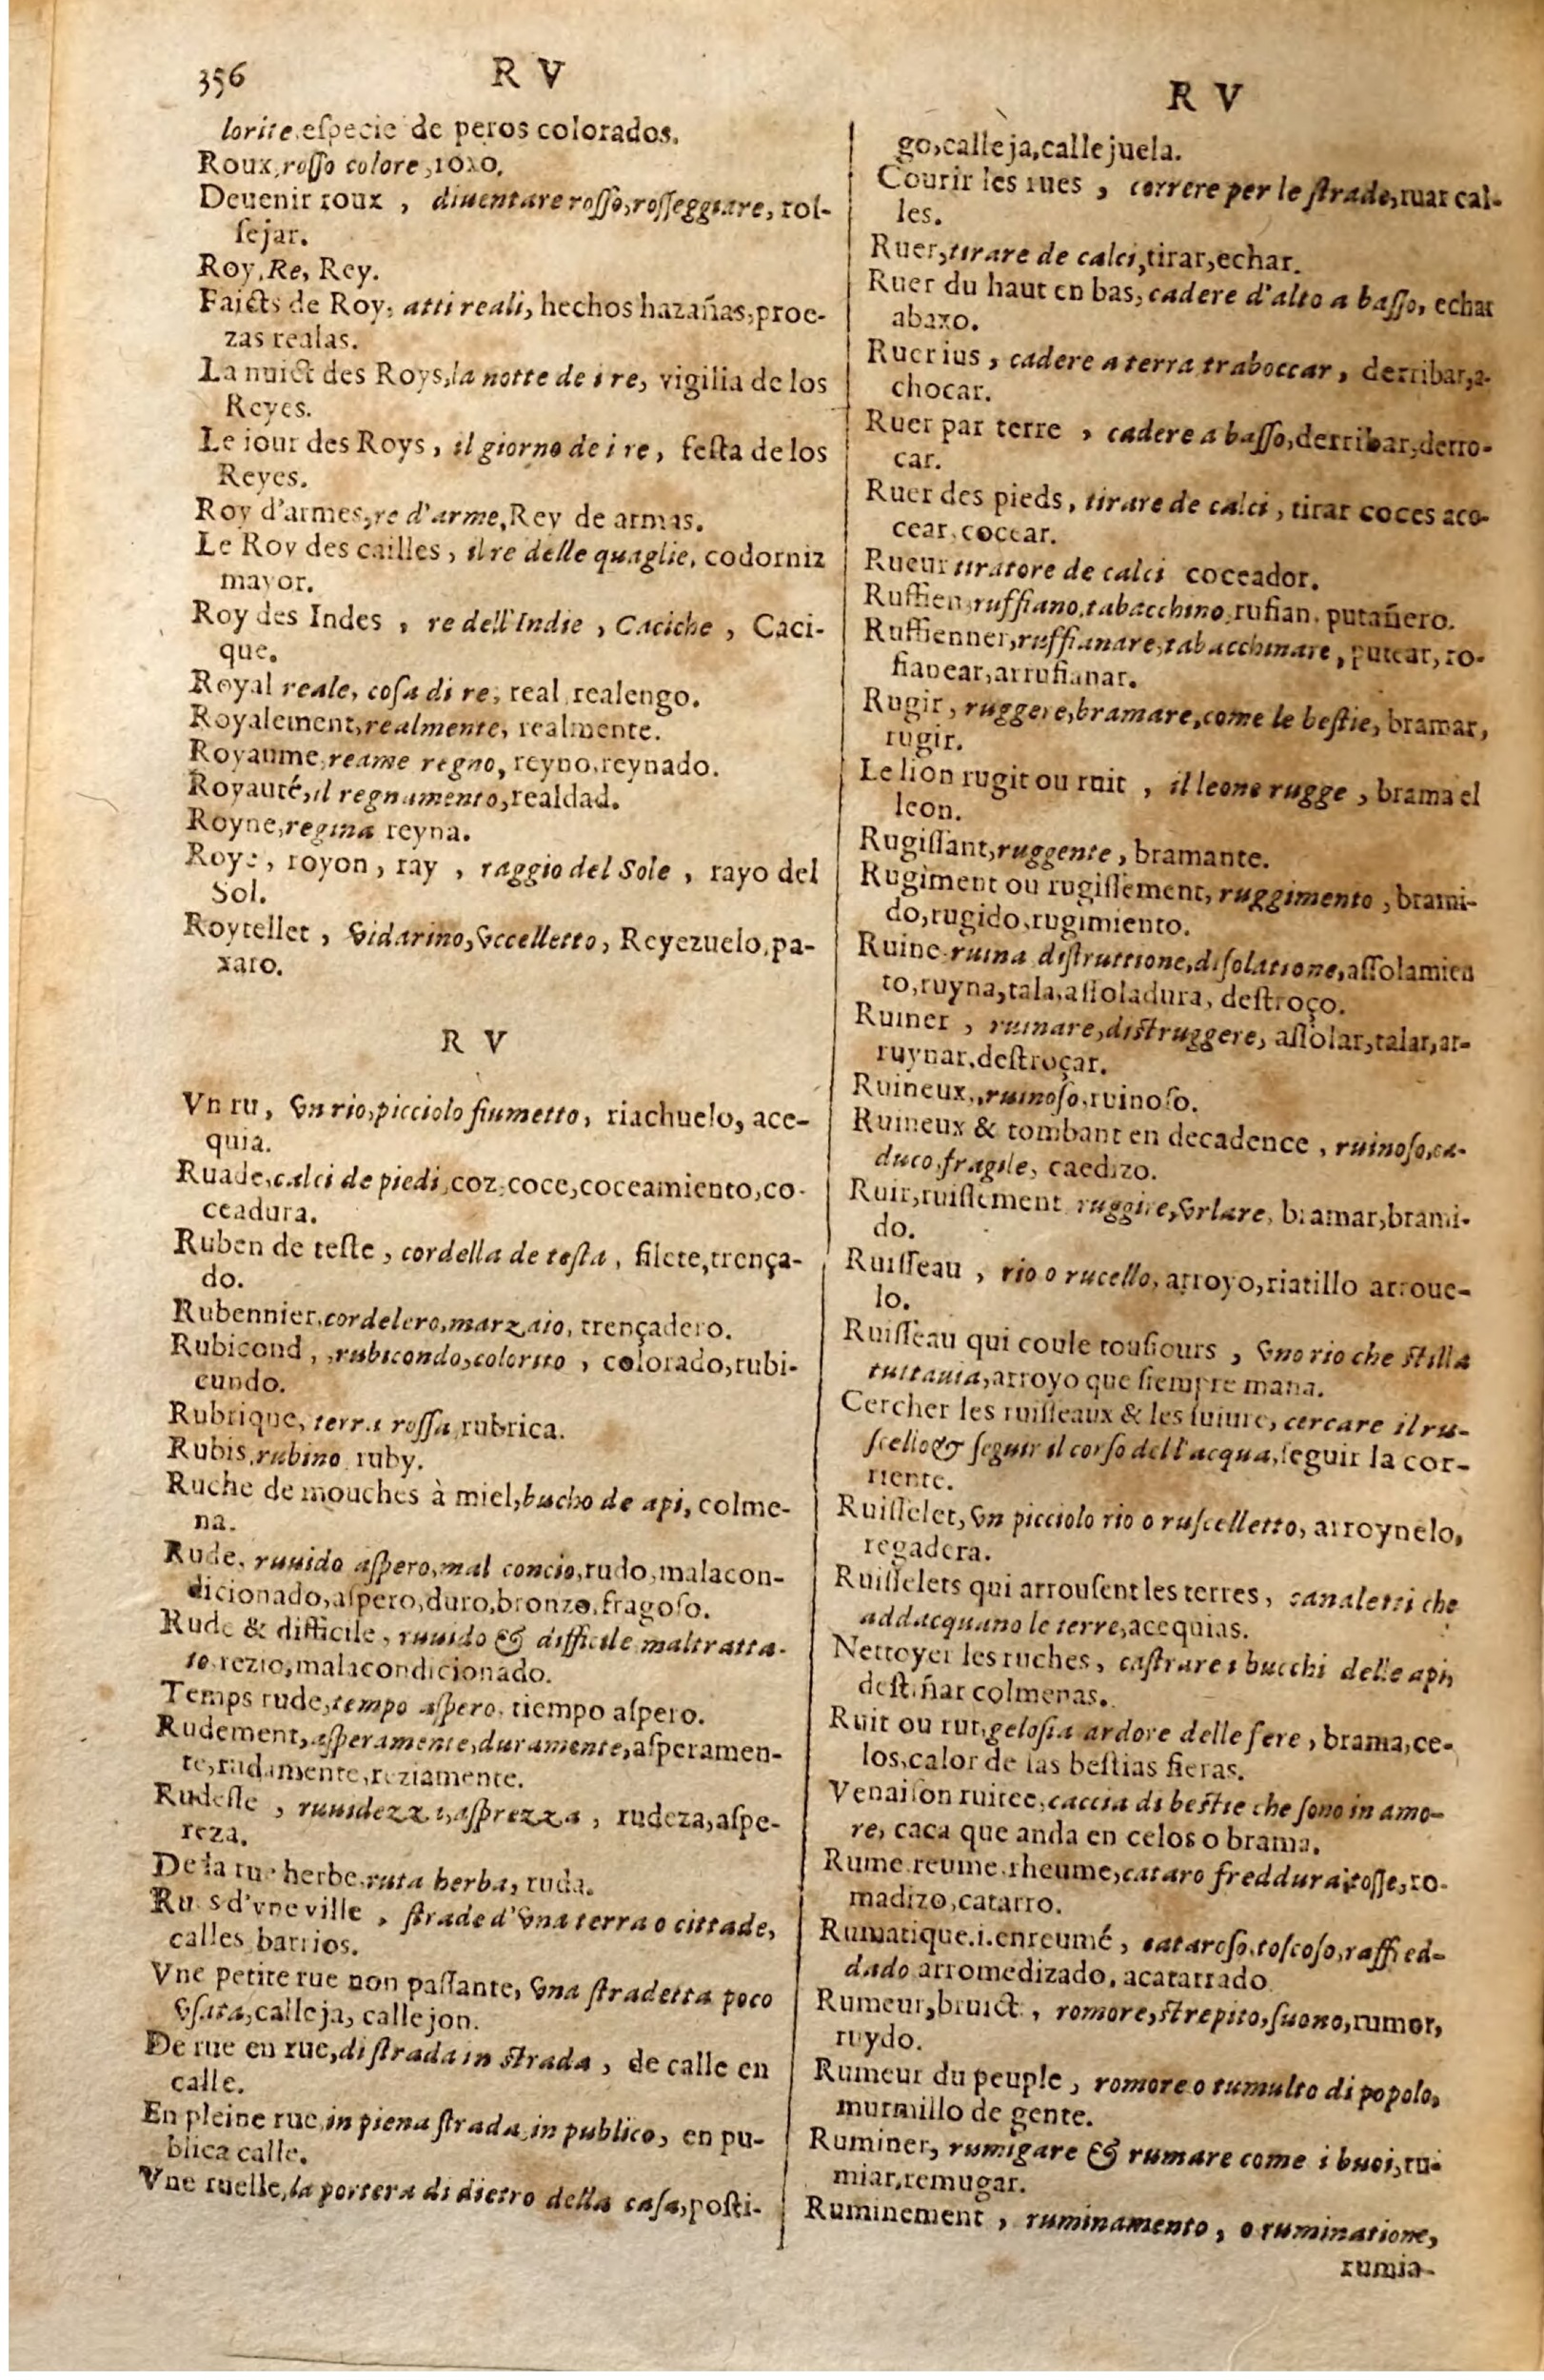 356
R V
lorite, eſpecie de peros colorados.
Roux, roſſo colore, roxo.
Deuenir roux , diuentare roſſo, roſſeggiare, roſ-
ſejar.
Roy, Re, Rey.
Faicts de Roy, atti reali, hechos hazañas, proe-
zas realas.
La nuict des Roys, la notte de i re, vigilia de los
Reyes.
Le iour des Roys , il giorno de i re , feſta de los
Reyes.
Roy d'armes, re d'arme, Rey de armas.
Le Roy des cailles , il re delle quaglie, codorniz
mayor.
Roy des Indes , re dell'Indie , Caciche , Caci-
que.
Royal reale, coſa di re, real, realengo.
Royalement, realmente, realmente.
Royaume, reame regno, reyno, reynado.
Royauté, il regnamento, realdad.
Royne, regina reyna.
Roye , royon , ray , raggio del Sole , rayo del
Sol.
Roytellet , vidarino, vccelletto, Reyezuelo, pa-
xaro.
R V
Vn ru, vn rio, picciolo fiumetto, riachuelo, ace-
quia.
Ruade, calci de piedi, coz, coce, coceamiento, co-
ceadura.
Ruben de teſte , cordella de teſta , filete, trença-
do.
Rubennier, cordelero, marzaio, trençadero.
Rubicond , rubicondo, colorito , colorado, rubi-
cundo.
Rubrique, terra roſſa, rubrica.
Rubis, rubino ruby.
Ruche de mouches à miel, bucho de api, colme-
na.
Rude, ruuido aſpero, mal concio, rudo, malacon-
dicionado, aſpero, duro, bronzo, fragoſo.
Rude & difficile , ruuido & difficile maltratta-
to, rezio, malacondicionado.
Temps rude, tempo aſpero, tiempo aſpero.
Rudement, aſperamente, duramente, aſperamen-
te, rudamente, reziamente.
Rudeſſe , ruuidezza, aſprezza , rudeza, aſpe-
reza.
De la rue herbe, ruta herba, ruda.
Rues d'vne ville , ſtrade d'vna terra o cittade,
calles barrios.
Vne petite rue non paſſante, vna ſtradetta poco
vſata, calleja, callejon.
De rue en rue, di ſtrada in ſtrada , de calle en
calle.
En pleine rue, in piena ſtrada, in publico, en pu-
blica calle.
Vne ruelle, la portera di dietro della caſa, poſti-
R V
go, calleja, callejuela.
Courir les rues , correre per le ſtrade, ruar cal-
les.
Ruer, tirare de calci, tirar, echar.
Ruer du haut en bas, cadere d'alto a baſſo, echar
abaxo.
Ruer ius , cadere a terra traboccar , derribar, a-
chocar.
Ruer par terre , cadere a baſſo, derribar, derro-
car.
Ruer des pieds, tirare de calci , tirar coces aco-
cear, cocear.
Rueur tiratore de calci coceador.
Ruffien, ruffiano, tabacchino, rufian, putañero.
Ruffienner, ruffianare, tabacchinare, putear, ro-
fianear, arrufianar.
Rugir , ruggere, bramare, come le beſtie, bramar,
rugir.
Le lion rugit ou ruit , il leone rugge , brama el
leon.
Rugiſſant, ruggente , bramante.
Rugiment ou rugiſſement, ruggimento , brami-
do, rugido, rugimiento.
Ruine ruina diſtruttione, diſolatione, aſſolamien
to, ruyna, tala, aſſoladura, deſtroço.
Ruiner , ruinare, diſtruggere, aſſolar, talar, ar-
ruynar, deſtroçar.
Ruineux, ruinoſo, ruinoſo.
Ruineux & tombant en decadence , ruinoſo, ca-
duco, fragile, caedizo.
Ruir, ruiſſement ruggire, vrlare, bramar, brami-
do.
Ruiſſeau , rio o rucello, arroyo, riatillo arroue-
lo.
Ruiſſeau qui coule touſiours , vno rio che ſtilla
tuttauia, arroyo que ſiempre mana.
Cercher les ruiſſeaux & les ſuiure, cercare il ru-
ſcello & ſeguir il corſo dell'acqua, ſeguir la cor-
riente.
Ruiſſelet, vn picciolo rio o ruſcelletto, arroynelo,
regadera.
Ruiſſelets qui arrouſent les terres , canaletti che
addacquano le terre, acequias.
Nettoyer les ruches, caſtrare i bucchi delle api,
deſtiñar colmenas.
Ruit ou rut, geloſia ardore delle fere , brama, ce-
los, calor de las beſtias fieras.
Venaiſon ruitee, caccia di beſtie che ſono in amo-
re, caca que anda en celos o brama.
Rume reume, rheume, cataro freddura, toſſe, ro-
madizo, catarro.
Rumatique.i.enreumé , cataroſo, toſcoſo, raffred-
dado arromedizado, acatarrado
Rumeur, bruict , romore, ſtrepito, ſuono, rumor,
ruydo.
Rumeur du peuple , romore o tumulto di popolo,
murmillo de gente.
Ruminer, rumigare & rumare come i buoi, ru-
miar, remugar.
Ruminement , ruminamento , o ruminatione,
rumia-